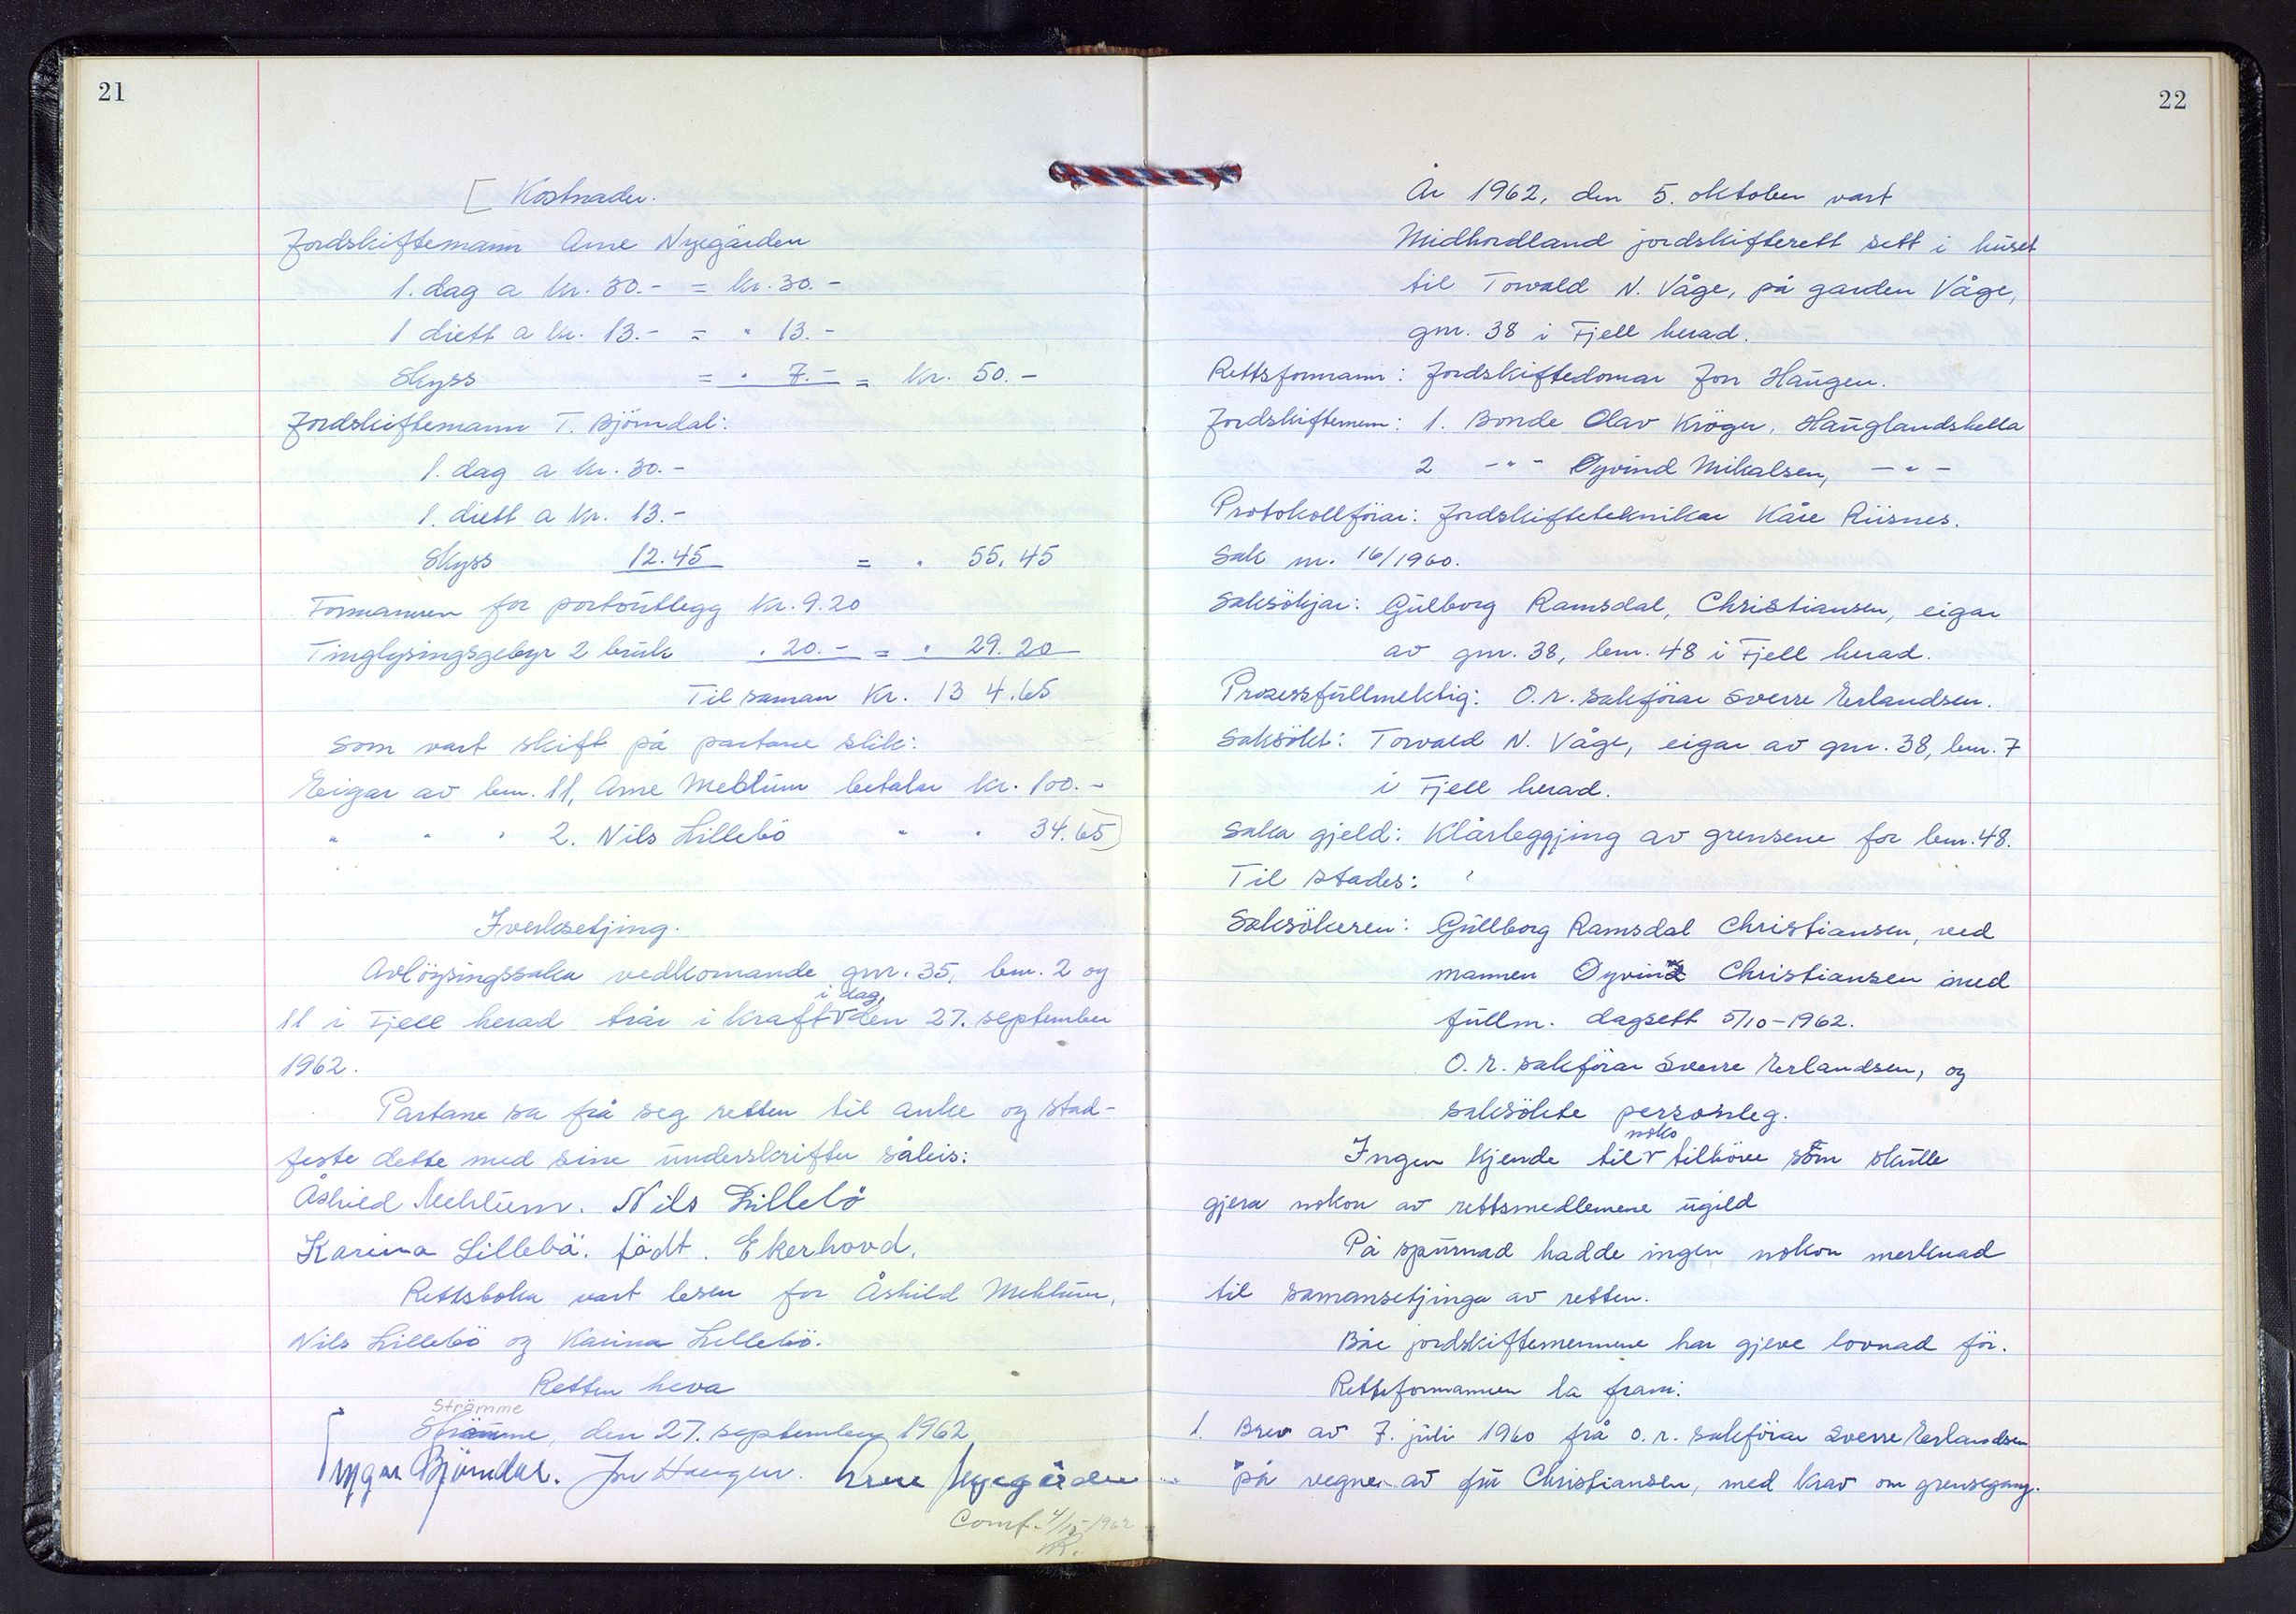 21
[ Kostnader.
Jordskiftemann Arne Nyegården
1. dag a kr. 30.- = kr. 30.-
1 diett a kr. 13.- = " 13.-
Skyss = " 7.- = kr. 50.-
Jordskiftemann T. Björndal:
1. dag a kr. 30.-
1. diett a kr. 13.-
Skyss 12.45 = " 55.45
Formannen for portoutlegg kr. 9.20
Tinglysingsgebyr 2 bruk " 20.- = " 29.20
Til saman kr. 134.65
som vart skift på partane slik:
Eigar av bnr. 11, Arne Mehlum betalar kr. 100.-
" " " 2. Nils Lillebö " " 34.65]
Iverksetjing.
Avlöysingssaka vedkomande gnr. 35, bnr. 2 og
i dag,
11 i Fjell herad trår i kraft v den 27. september
1962.
Partane sa frå seg retten til anke og stad-
feste dette med sine underskrifter såleis:
Åshild Mehlum. Nils Lillebö
Karina Lillebö. födt. Ekerhovd.
Rettsboka vart lesen for Åshild Mehlum,
Nils Lillebö og Karina Lillebö.
Retten heva
Strömme
Strömme, den 27. september 1962
Trygve Björndal. Jon Haugen. Arne Nyegården
Comf. 4/12-1962
KR.
22
År 1962, den 5. oktober vart
Midhordland jordskifterett sett i huset
til Torvald N. Våge, på garden Våge,
gnr. 38 i Fjell herad.
Rettsformann: Jordskiftedomar Jon Haugen.
Jordskiftemenn: 1. Bonde Olav Kröger, Hauglandshella
2 -"- Øyvind Mikalsen, -"-
Protokollförar: Jordskifteteknikar Kåre Riisnes.
Sak nr. 16/1960.
Saksökjar: Gulborg Ramsdal, Christiansen, eigar
av gnr. 38, bnr. 48 i Fjell herad.
Prosessfullmektig: O.r. sakförar Sverre Erlandsen.
Saksökt: Torvald N. Våge, eigar av gnr. 38, bnr. 7
i Fjell herad.
Saka gjeld: Klårleggjing av grensene for bnr. 48.
Til stades:
Saksökeren: Gullborg Ramsdal Christiansen, ved
mannen Øyvind Christiansen med
fullm. dagsett 5/10-1962.
O.r. sakförar Sverre Erlandsen, og
saksökte personleg.
noko
Ingen kjende til v tilhöve som skulle
gjera nokon av rettsmedlemene ugild
På spurnad hadde ingen nokon merknad
til samansetjinga av retten.
Båe jordskiftemennene har gjeve lovnad för.
Rettsformannen la fram:
1. Brev av 7. juli 1960 frå o.r. sakförar Sverre Erlandsen
på vegner av fru Christiansen, med krav om grensegang.